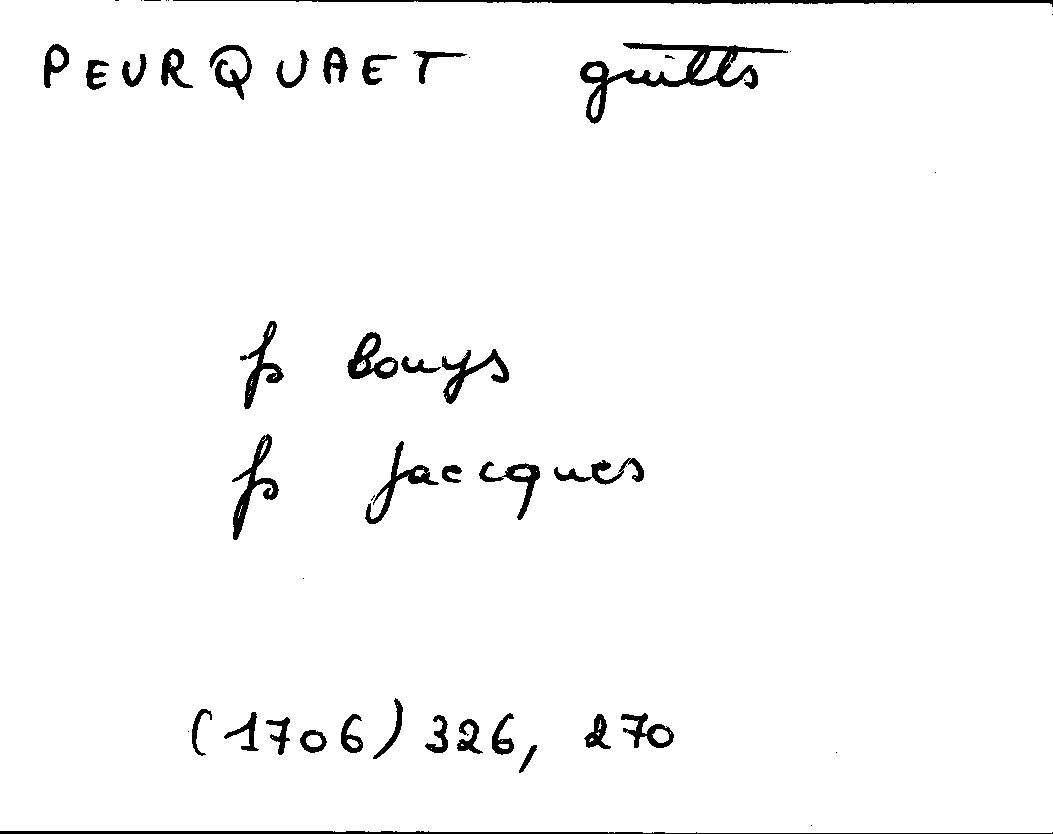 PEURQUAET guilts
fs bouys
fs Jaecques
(1706) 326, 270